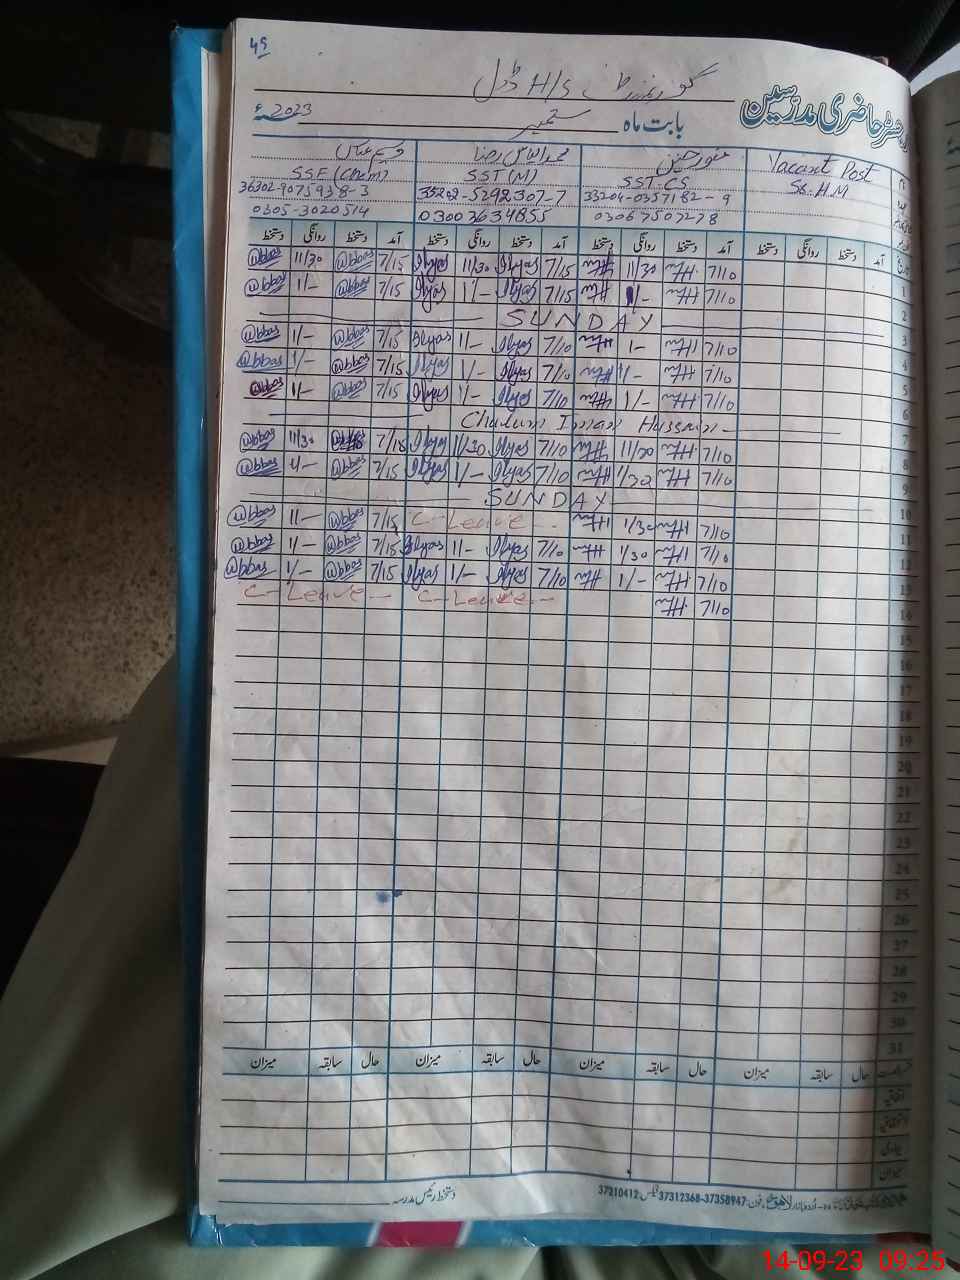 49
گورنمنٹ H/S ڈل
رجسٹر حاضری مدرسین
بابت ماہ ستمبر 2023ء
Vacant Post منور حسین محمد الیاس رضا وسیم عباس
SS. H.M SST.CS SST(M) SSE(Chem)
33204-0357182-9 35202-5292307-7 36302-9075938-3
03067507278 03007634855 0305-3020514
آمد دستخط روانگی دستخط آمد دستخط روانگی دستخط آمد دستخط روانگی دستخط آمد دستخط روانگی دستخط
1 7/10 11/30 7/15 Ilyas 11/30 Ilyas 7/15 @bbas 11/30 @bbas
2 7/10 1/- 7/15 Ilyas 1/- Ilyas 7/15 @bbas 1/- @bbas
3 SUNDAY
4 7/10 1/- 7/10 Ilyas 1/- Ilyas 7/15 @bbas 1/- @bbas
5 7/10 1/- 7/10 Ilyas 1/- Ilyas 7/15 @bbas 1/- @bbas
6 7/10 1/- 7/10 Ilyas 1/- Ilyas 7/15 @bbas 1/- @bbas
7 Chalum Imam Hussain
8 7/10 11/30 7/10 Ilyas 11/30 Ilyas 7/15 @bbas 11/30 @bbas
9 7/10 1/30 7/10 Ilyas 1/- Ilyas 7/15 @bbas 1/- @bbas
10 SUNDAY
11 7/10 1/30 C-Leave 7/15 @bbas 1/- @bbas
12 7/10 1/30 7/10 Ilyas 1/- Ilyas 7/15 @bbas 1/- @bbas
13 7/10 1/- 7/10 Ilyas 1/- Ilyas 7/15 @bbas 1/- @bbas
14 7/10 C-Leave C-Leave
15
16
17
18
19
20
21
22
23
24
25
26
27
28
29
30
31
حال سابقہ میزان حال سابقہ میزان حال سابقہ میزان حال سابقہ میزان
اتفاقیہ
بیماری
میزان
دستخط رئیس مدرسہ
فون: 37358947-37312368 فیکس: 37210412
14-09-23 09:25